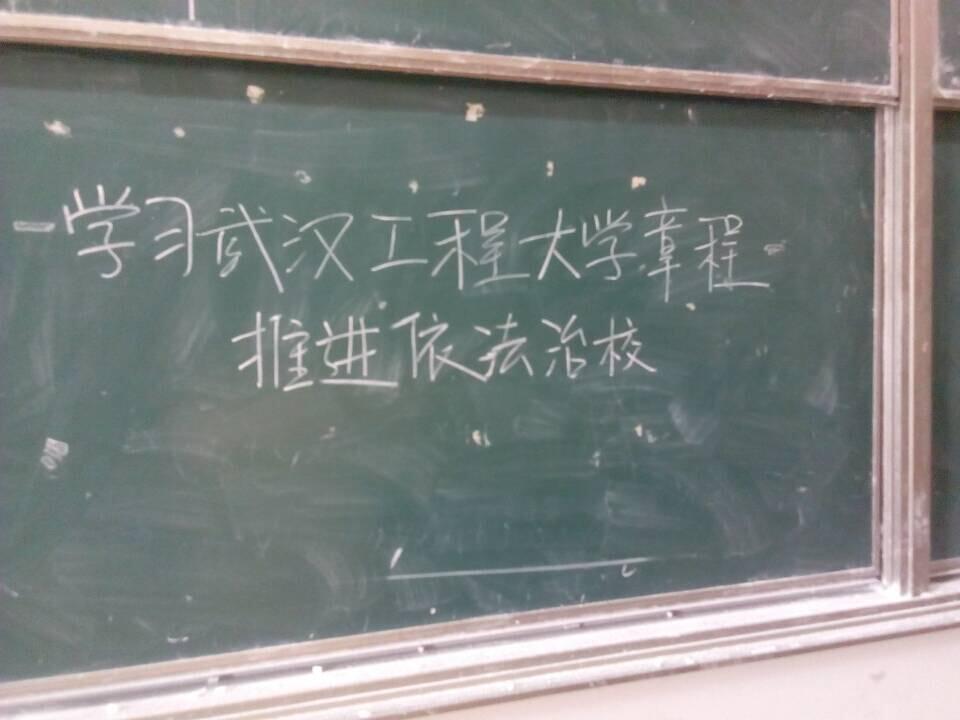 学习武汉工程大学章程
推进依法治校